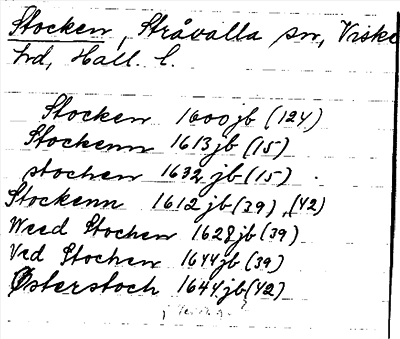 Stocken, Stråvalla sn, Viske
hd, Hall. l.
Stocken 1600jb (124)
Stockenn 1613jb (15)
stochen 1632jb (15)
Stockenn 1612jb (39), (42)
Weed Stochen 1628jb (39)
Ved Stochen 1644jb (39)
Østerstoch 1644jb (42)